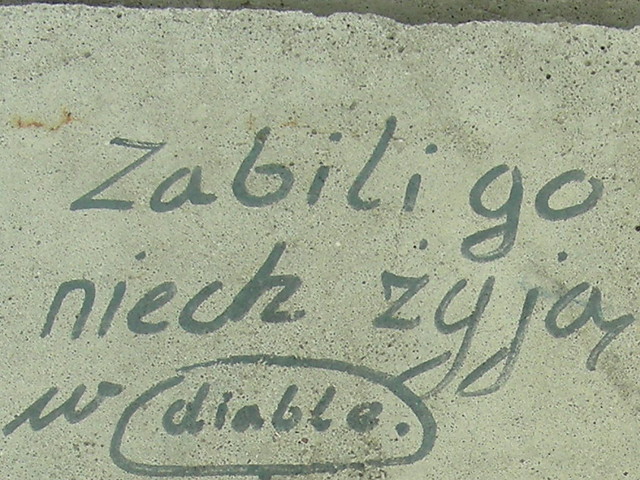 Zabili go
niech żyją
w diable.